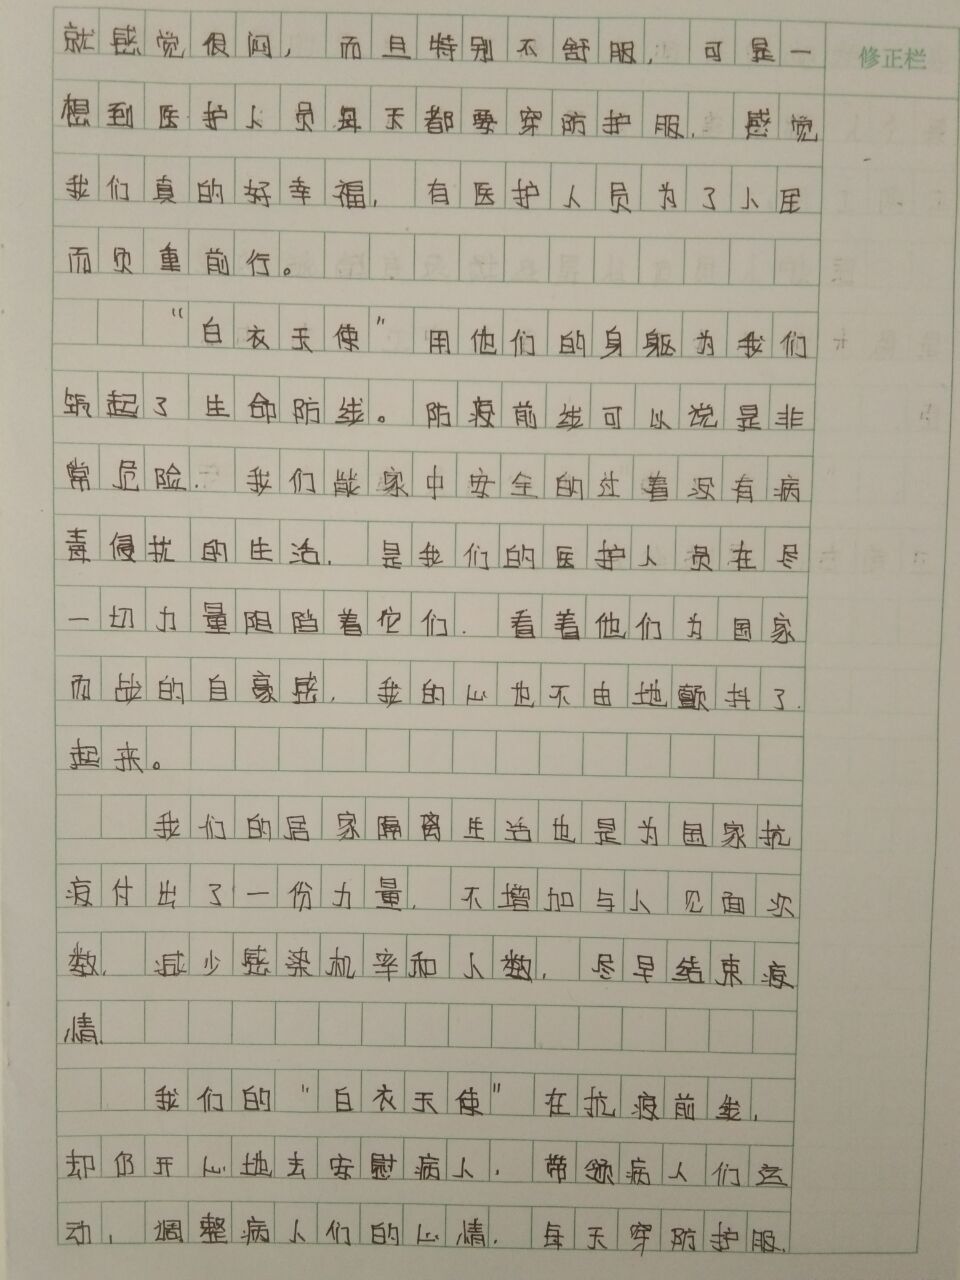 就感觉很闷，而且特别不舒服，可是一
修正栏
想到医护人员每天都要穿防护服，感觉
我们真的好幸福，有医护人员为了人民
而负重前行。
“白衣天使”用他们的身躯为我们
筑起了生命防线。防疫前线可以说是非
常危险，我们能家中安全的过着没有病
毒侵扰的生活，是我们的医护人员在尽
一切力量阻挡着它们。看着他们为国家
而战的自豪感，我的心也不由地颤抖了
起来。
我们的居家隔离生活也是为国家抗
疫付出了一份力量，不增加与人见面次
数，减少感染机率和人数，尽早结束疫
情。
我们的“白衣天使”在抗疫前线，
却仍开心地去安慰病人，带领病人们运
动，调整病人们的心情，每天穿防护服，